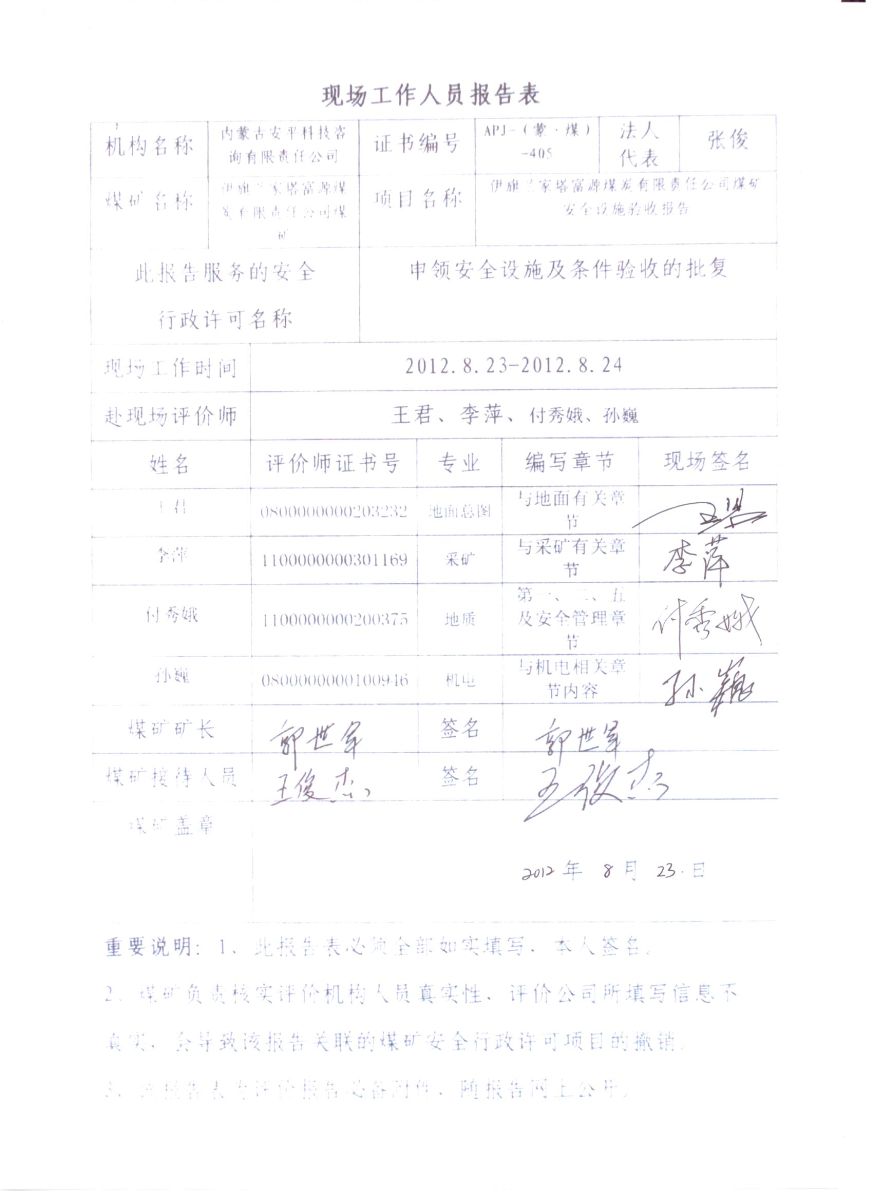 现场工作人员报告表
机构名称 内蒙古安平科技咨 证书编号 APJ-(蒙·煤) 法人 张俊
询有限责任公司 -405 代表
煤矿名称 伊旗兰家塔富源煤 项目名称 伊旗兰家塔富源煤炭有限责任公司煤矿
炭有限责任公司煤 安全设施验收报告
矿
此报告服务的安全 申领安全设施及条件验收的批复
行政许可名称
现场工作时间 2012.8.23-2012.8.24
赴现场评价师 王君、李萍、付秀娥、孙巍
姓名 评价师证书号 专业 编写章节 现场签名
王君 0800000000203232 地面总图 与地面有关章 王君
节
李萍 1100000000301169 采矿 与采矿有关章 李萍
节
第一、二、五
付秀娥 1100000000200375 地质 及安全管理章 付秀娥
节
孙巍 0800000000100946 机电 与机电相关章 孙巍
节内容
煤矿矿长 郭世军 签名 郭世军
煤矿接待人员 王俊杰 签名 王俊杰
煤矿盖章
2012年 8月 23.日
重要说明:1、此报告表必须全部如实填写,本人签名。
2、煤矿负责核实评价机构人员真实性、评价公司所填写信息不
真实,会导致该报告关联的煤矿安全行政许可项目的撤销。
3、此报告表为评价报告必备附件,随报告网上公开。